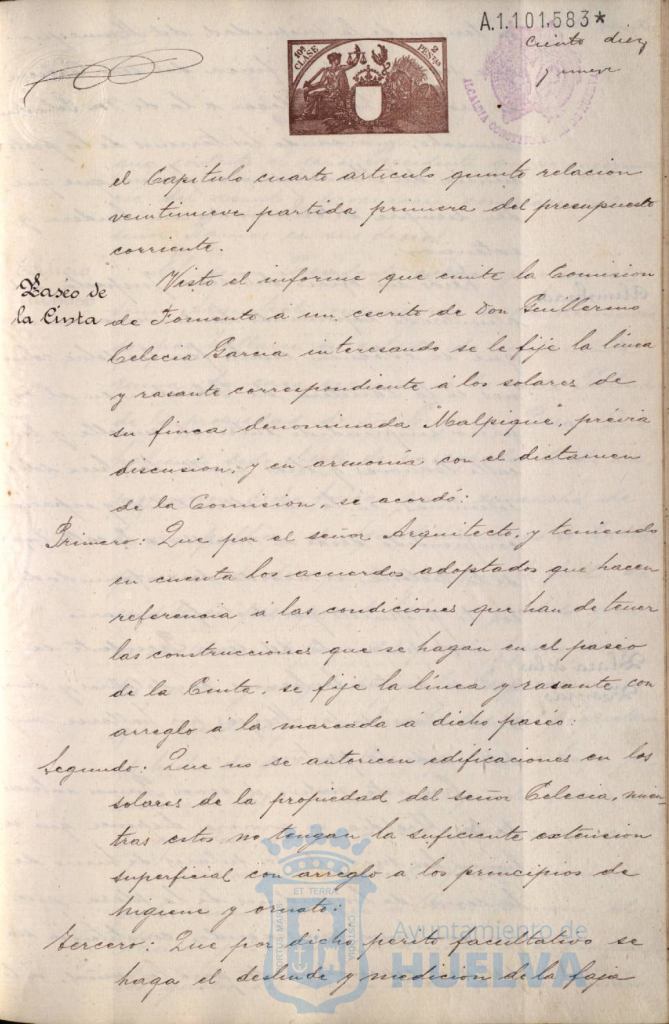 A.1.101,583*
10ª CLASE
2 PESETAS
Ciento diez
ALCALDIA CONSTITUCIONAL DE HUELVA
el Capítulo cuarto artículo quinto relacion
veintinueve partida primera del presupuesto
corriente.
Paseo de
la Cinta
Visto el informe que emite la Comision
de Fomento á un escrito de Don Guillermo
Celecia Garcia interesando se le fije la línea
y rasante correspondiente á los solares de
su finca denominada "Malpique", prévia
discusion, y en armonía con el dictamen
de la Comision, se acordó:
Primero: Que por el señor Arquitecto, y teniendo
en cuenta los acuerdos adoptados que hacen
referencia á las condiciones que han de tener
las construcciones que se hagan en el paseo
de la Cinta, se fije la línea y rasante con
arreglo á la marcada á dicho paséo:
Segundo: Que no se autoricen edificaciones en los
solares de la propiedad del señor Celecia, mien-
tras estos no tengan la suficiente extension
superficial con arreglo a los principios de
higiene y ornato:
Tercero: Que por dicho perito facultativo se
haga el deslinde y medicion de la faja
PORTUS MARIS ET TERRAE CUSTODIA
Ayuntamiento de
HUELVA